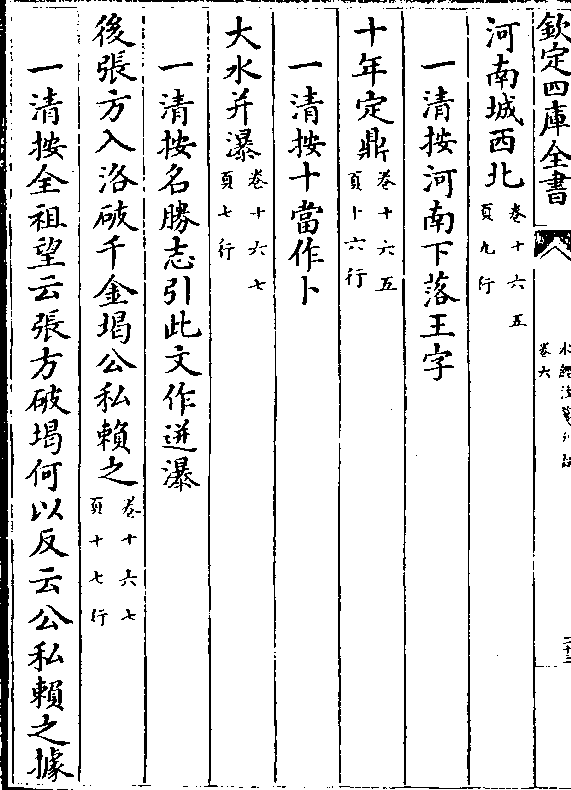 欽定四庫全書
水經注箋刊誤
卷六
二十二
河南城西北卷十六五頁九行
一清按河南下落王字
十年定鼎卷十六五頁十六行
一清按十當作卜
大水并瀑卷十六七頁七行
一清按名勝志引此文作迸瀑
後張方入洛破千金堨公私賴之卷十六七頁十七行
一清按全祖望云張方破堨何以反云公私賴之據